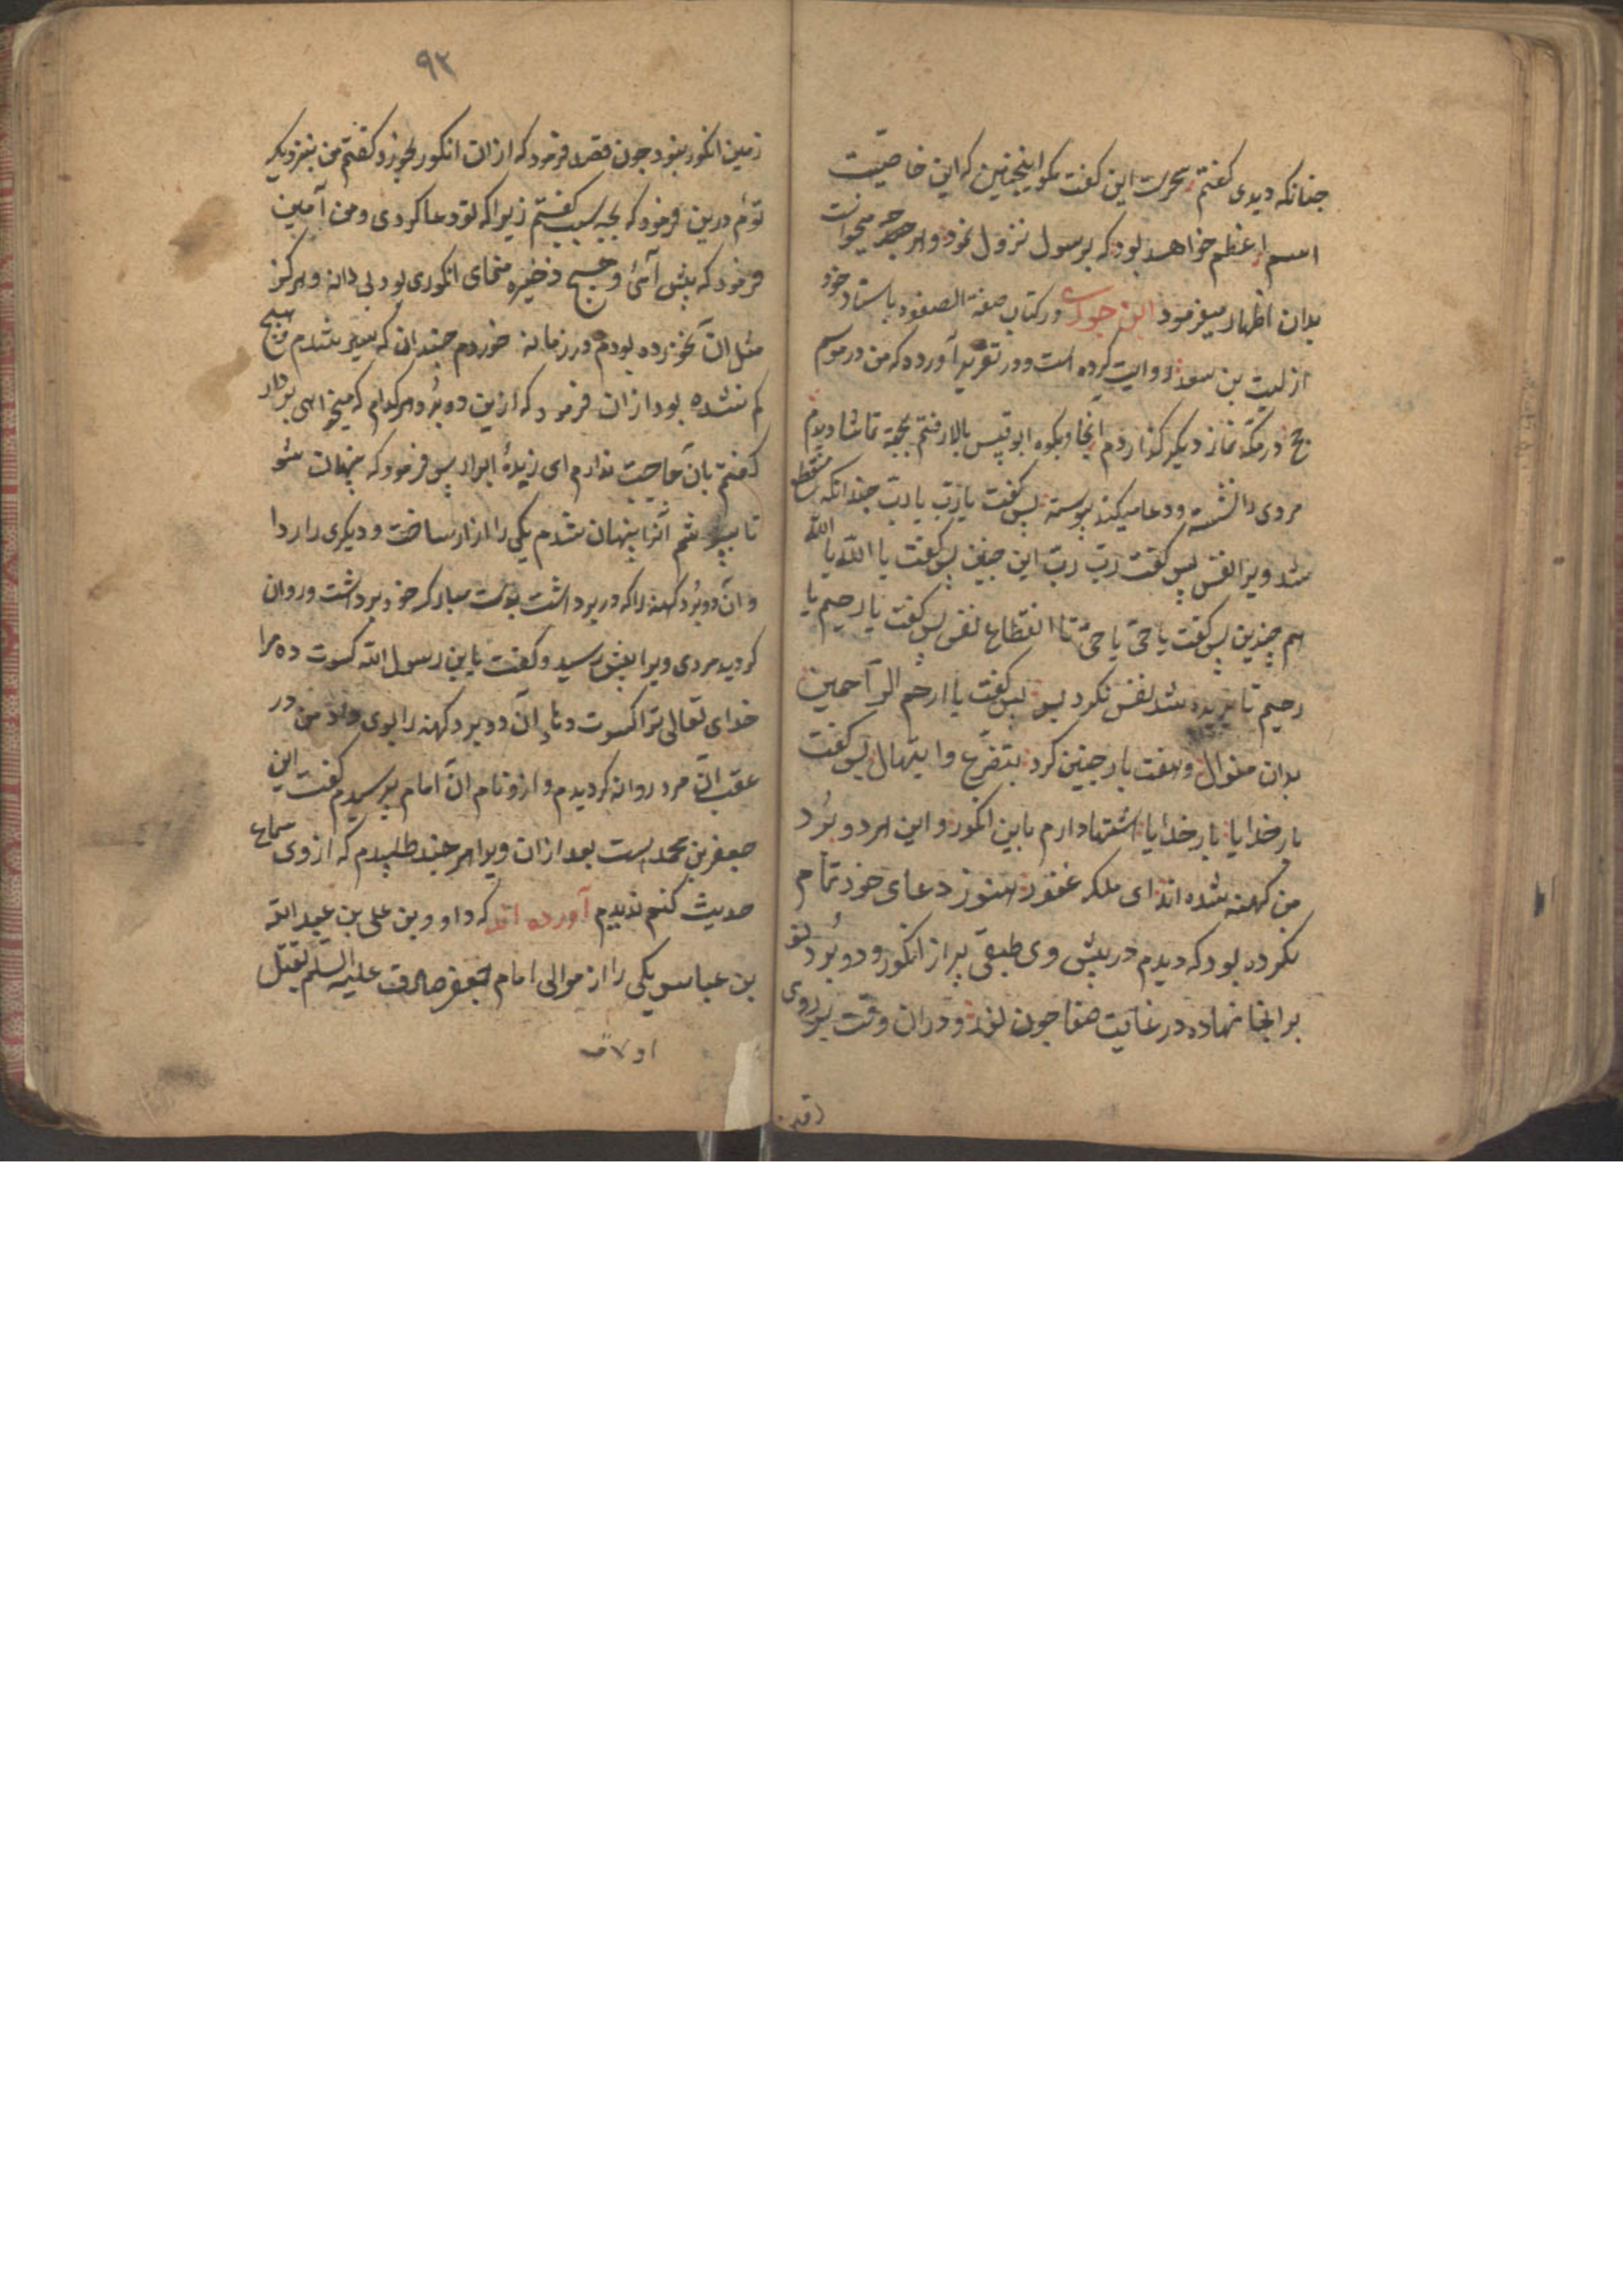 جنانکه دیدی کفتم بحرت این کفت بکو اینچنین که این خاصیت
اسم اعظم خواهد بود که بر رسول نزول نمود و هر چه میخواست
بدان اظهار میفرمود ابن جوزی در کتاب صفة الصفوه باسناد خود
از لیث بن سعد روایت کرده است و در تقریر آورده که من در موسم
حج در مکه نماز دیکر کذاردم انجا و بکوه ابو قبیس بالا رفتم بجهة تماشا دیدم
مردی را نشسته و دعا میکند پیوسته پس کفت یا رب یا رب چندانکه منقطع
شد ویرا نفس پس کفت رب رب این چنین پس کفت یا الله یا الله
هم چنین پس کفت یا حی یا حی تا انقطاع نفس پس کفت یا رحیم یا
رحیم تا بریده شد نفس نکرد پس کفت یا ارحم الراحمین
بدان منوال و هفت بار چنین کرد بتضرع و ابتهال پس کفت
بار خدایا بار خدایا اشتها دارم باین انکور و این هر دو برد
من کهنه شده اند ای ملک غفور هنوز دعای خود تمام
نکرده بود که دیدم در پیش وی طبقی پر از انکور و دو برد نو
بر انجا نهاده در غایت صفا چون نور و دران وقت بر روی
زمین انکور نبود چون قصد فرمود که ازان انکور بخورد کفتم من نیز شریک
توئم درین فرمود که بچه سبب کفتم زیرا که تو دعا کردی و من آمین
فرمود که پیش آی و هیچ ذخیره منمای انکوری بود بی دانه و هرکز
مثل ان نخورده بودم در زمانه خوردم چندان که سیر شدم و هیچ
کم نشده بود ازان فرمود که ازین دو برد هر کدام که میخواهی بردار
کفتم بان حاجت ندارم ای زبدهٔ ابرار پس فرمود که پنهان شو
تا بپوشم آنرا پنهان شدم یکی را ازار ساخت و دیکری را ردا
و آن دو برد کهنه را که در بر داشت بدست مبارک خود برداشت و روان
کردید مردی ویرا پیش رسید و کفت یا بن رسول الله کسوت ده مرا
خدای تعالی ترا کسوت دهاد آن دو برد کهنه را بوی داد من در
عقب ان مرد روانه کردیدم و ازو نام ان امام پرسیدم کفت این
جعفر بن محمد است بعد ازان ویرا هر چند طلبیدم که از وی سماع
حدیث کنم ندیدم آورده اند که داود بن علی بن عبد الله
بن عباس یکی را از موالی امام جعفر صادق علیه السلم بقتل